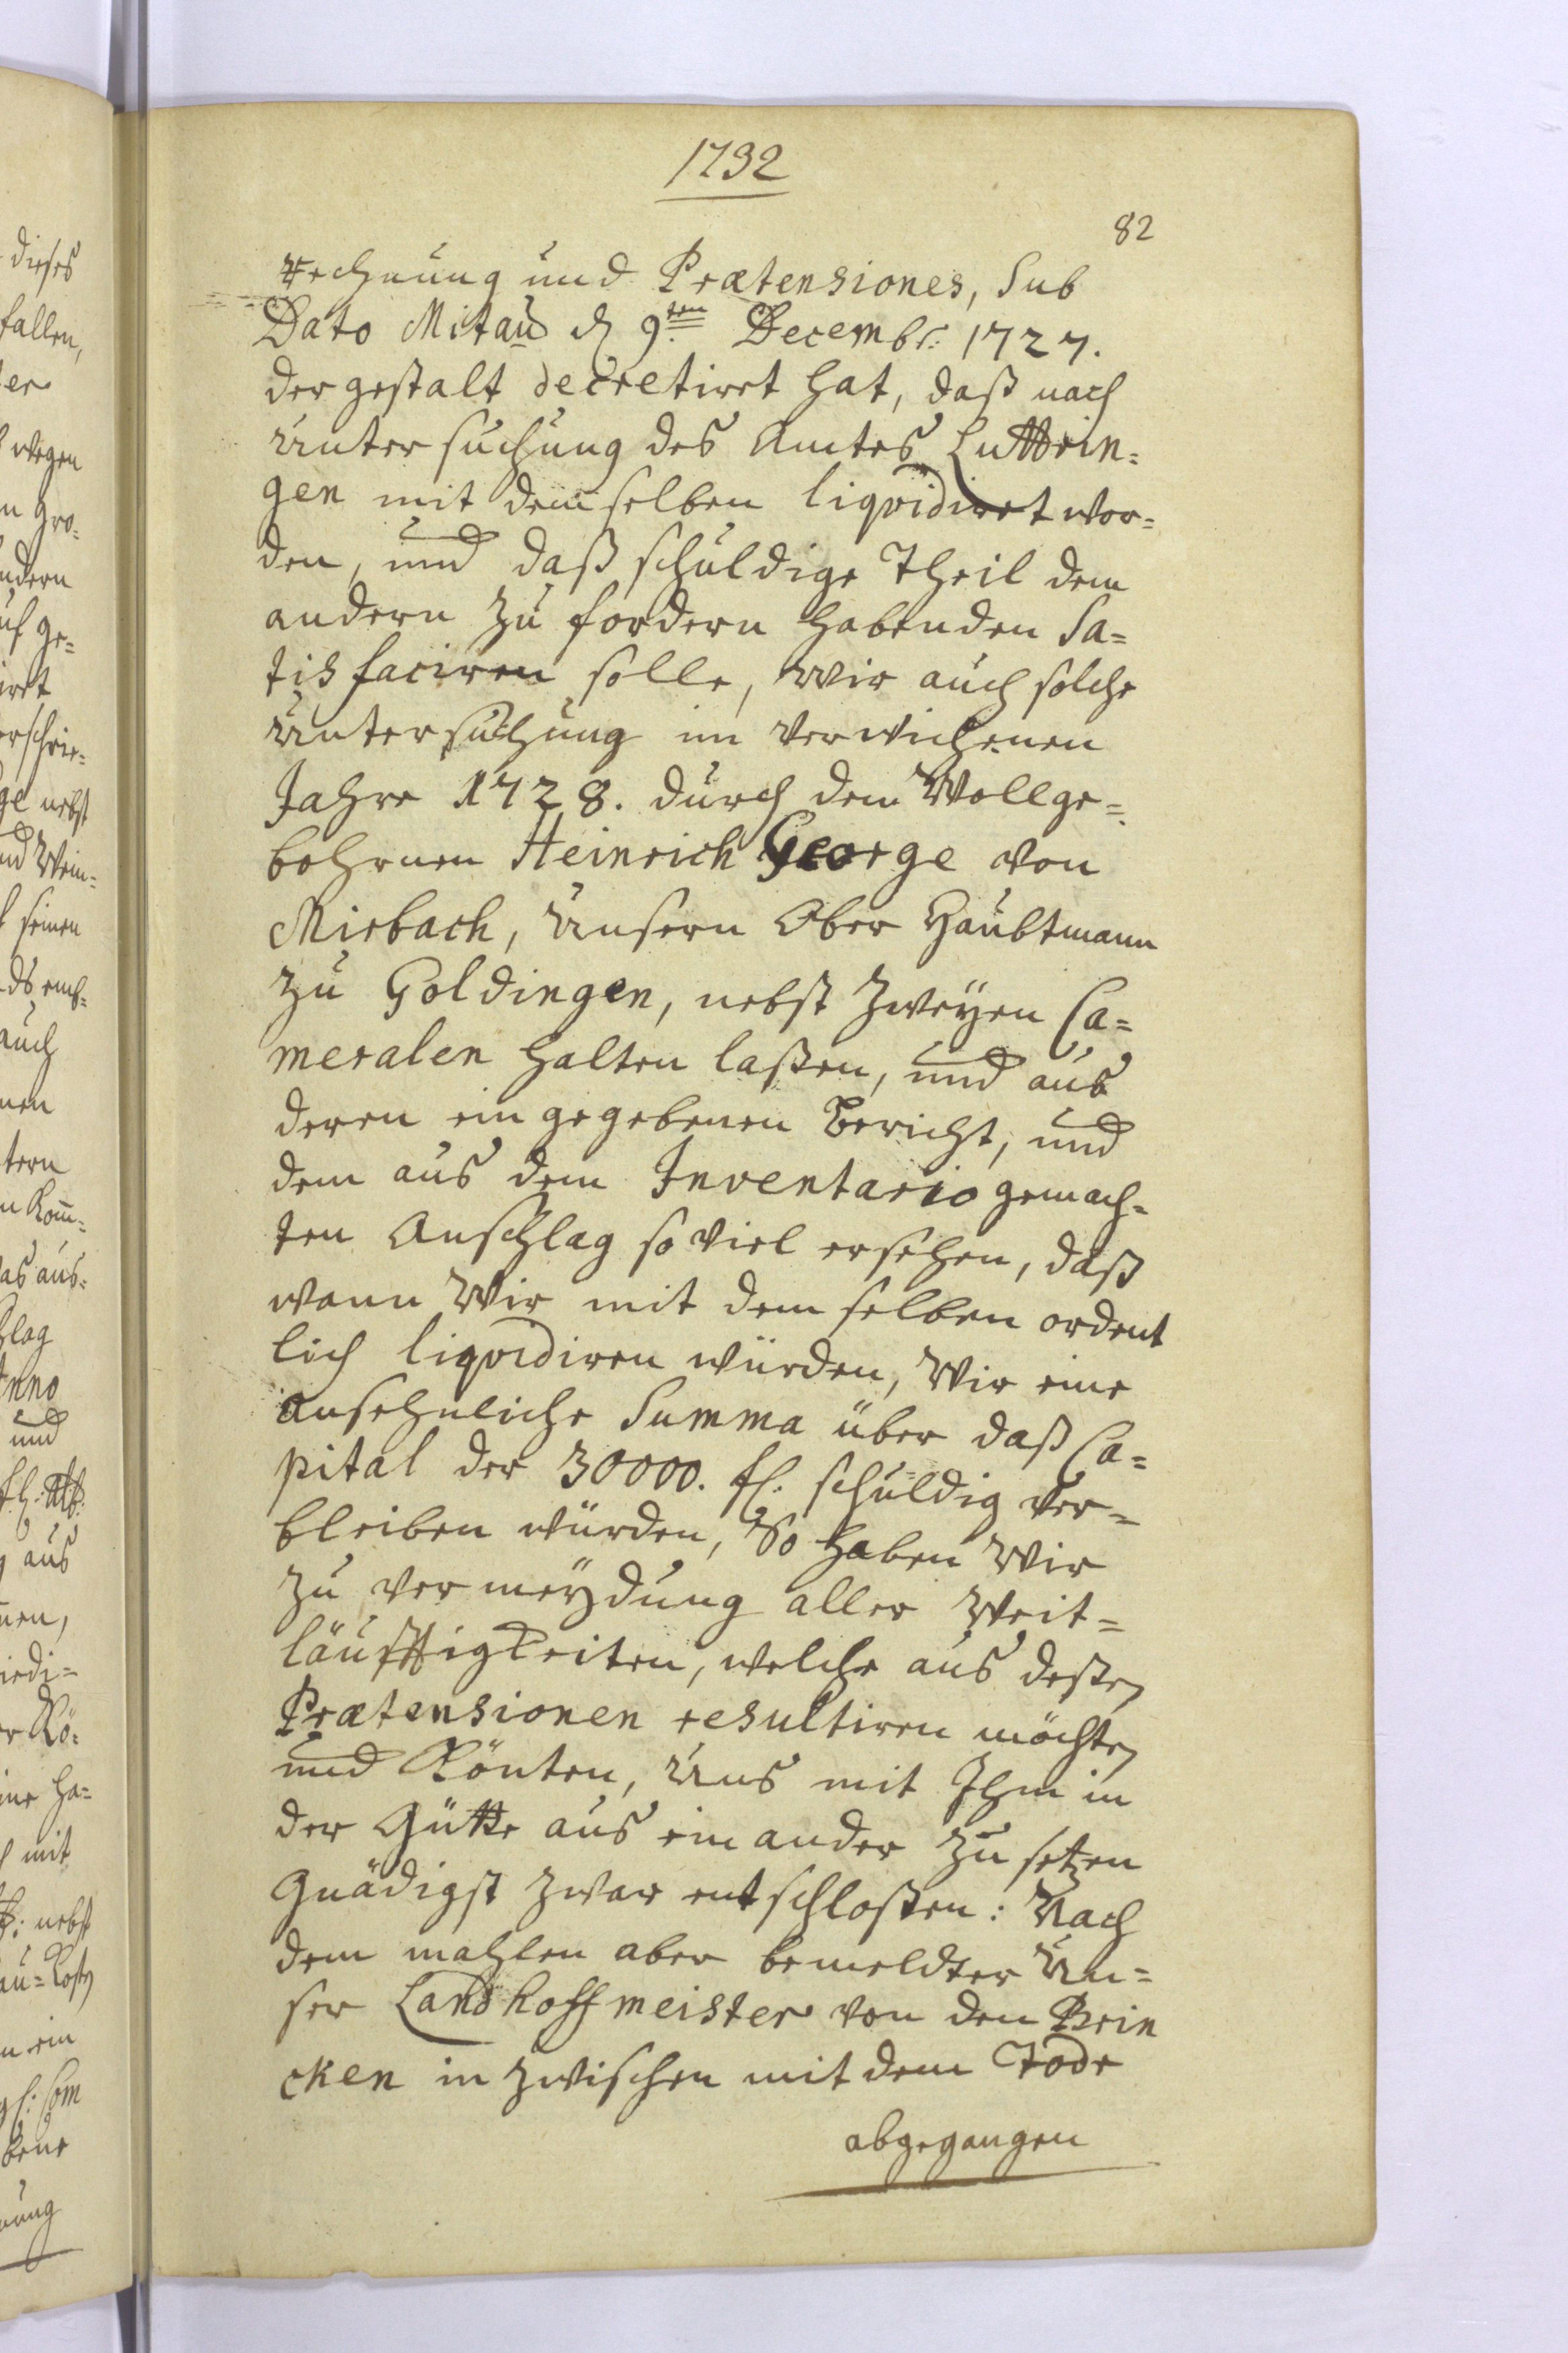 1732
82
rechnung und Prætensiones, Sub
Dato Mitau d 9ten Decembr: 1727.
der gestalt decretiret hat, daß nach
Untersuchung des Amtes Luttrin=
gen mit demselben liqvidiret wor=
den, und daß schuldige Theil dem
andern zu fordern habenden Sa=
tisfaciren solle, Wir auch solche
Untersuchung im verwichenen
Jahre 1728. durch dem Wollge=
bohrnen Heinrich George von
Mirbach, Unsern Ober Haubtmann
zu Goldingen, nebst zweyen Ca=
meralen halten laßen, und aus
deren ein gegebenen Bericht, und
dem aus dem Inventario gemach=
ten Anschlag so viel ersehen, daß
wann Wir mit dem selben ordent
lich liqvidiren würden, Wir eine
ansehnliche Summa über daß Ca=
pital der 30000. fl: schuldig ver=
bleiben würden, So haben Wir
zu vermeydung aller Weit=
läufftigkeiten, welche aus deßen
Prætensionen resultiren möchten
und Könten, Uns mit Ihm in
der Gütte aus ein ander zu setzen
Gnädigst zwar entschloßen: Nach
dem mahlen aber bemeldter Un=
ser Landhoffmeister von den Brin
cken in zwischen mit dem Tode
abgegangen
dieses
fallen,
wegen
ndern
uf ge=
nebst
seinen
auch
und
aus
mit
nebst